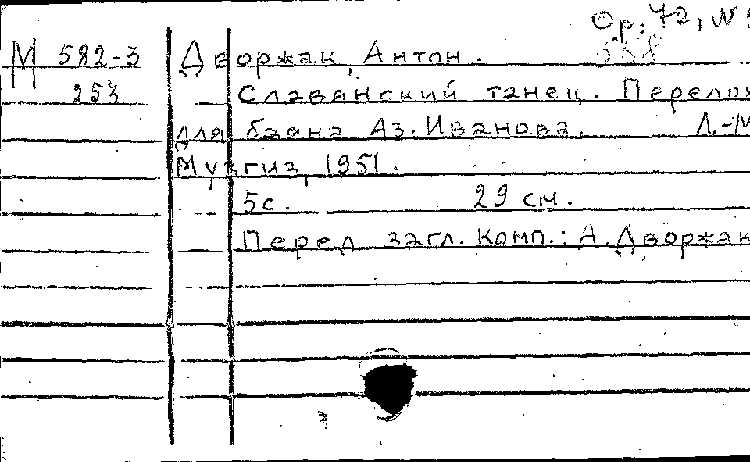 Op. 72, №
М 582-3 Дворжак, Антон.
253 Славянский танец. Перелож
для баяна Аз. Иванова. Л.-М
Музгиз, 1951.
5с. 29 см.
Перед загл. комп.: А. Дворжак